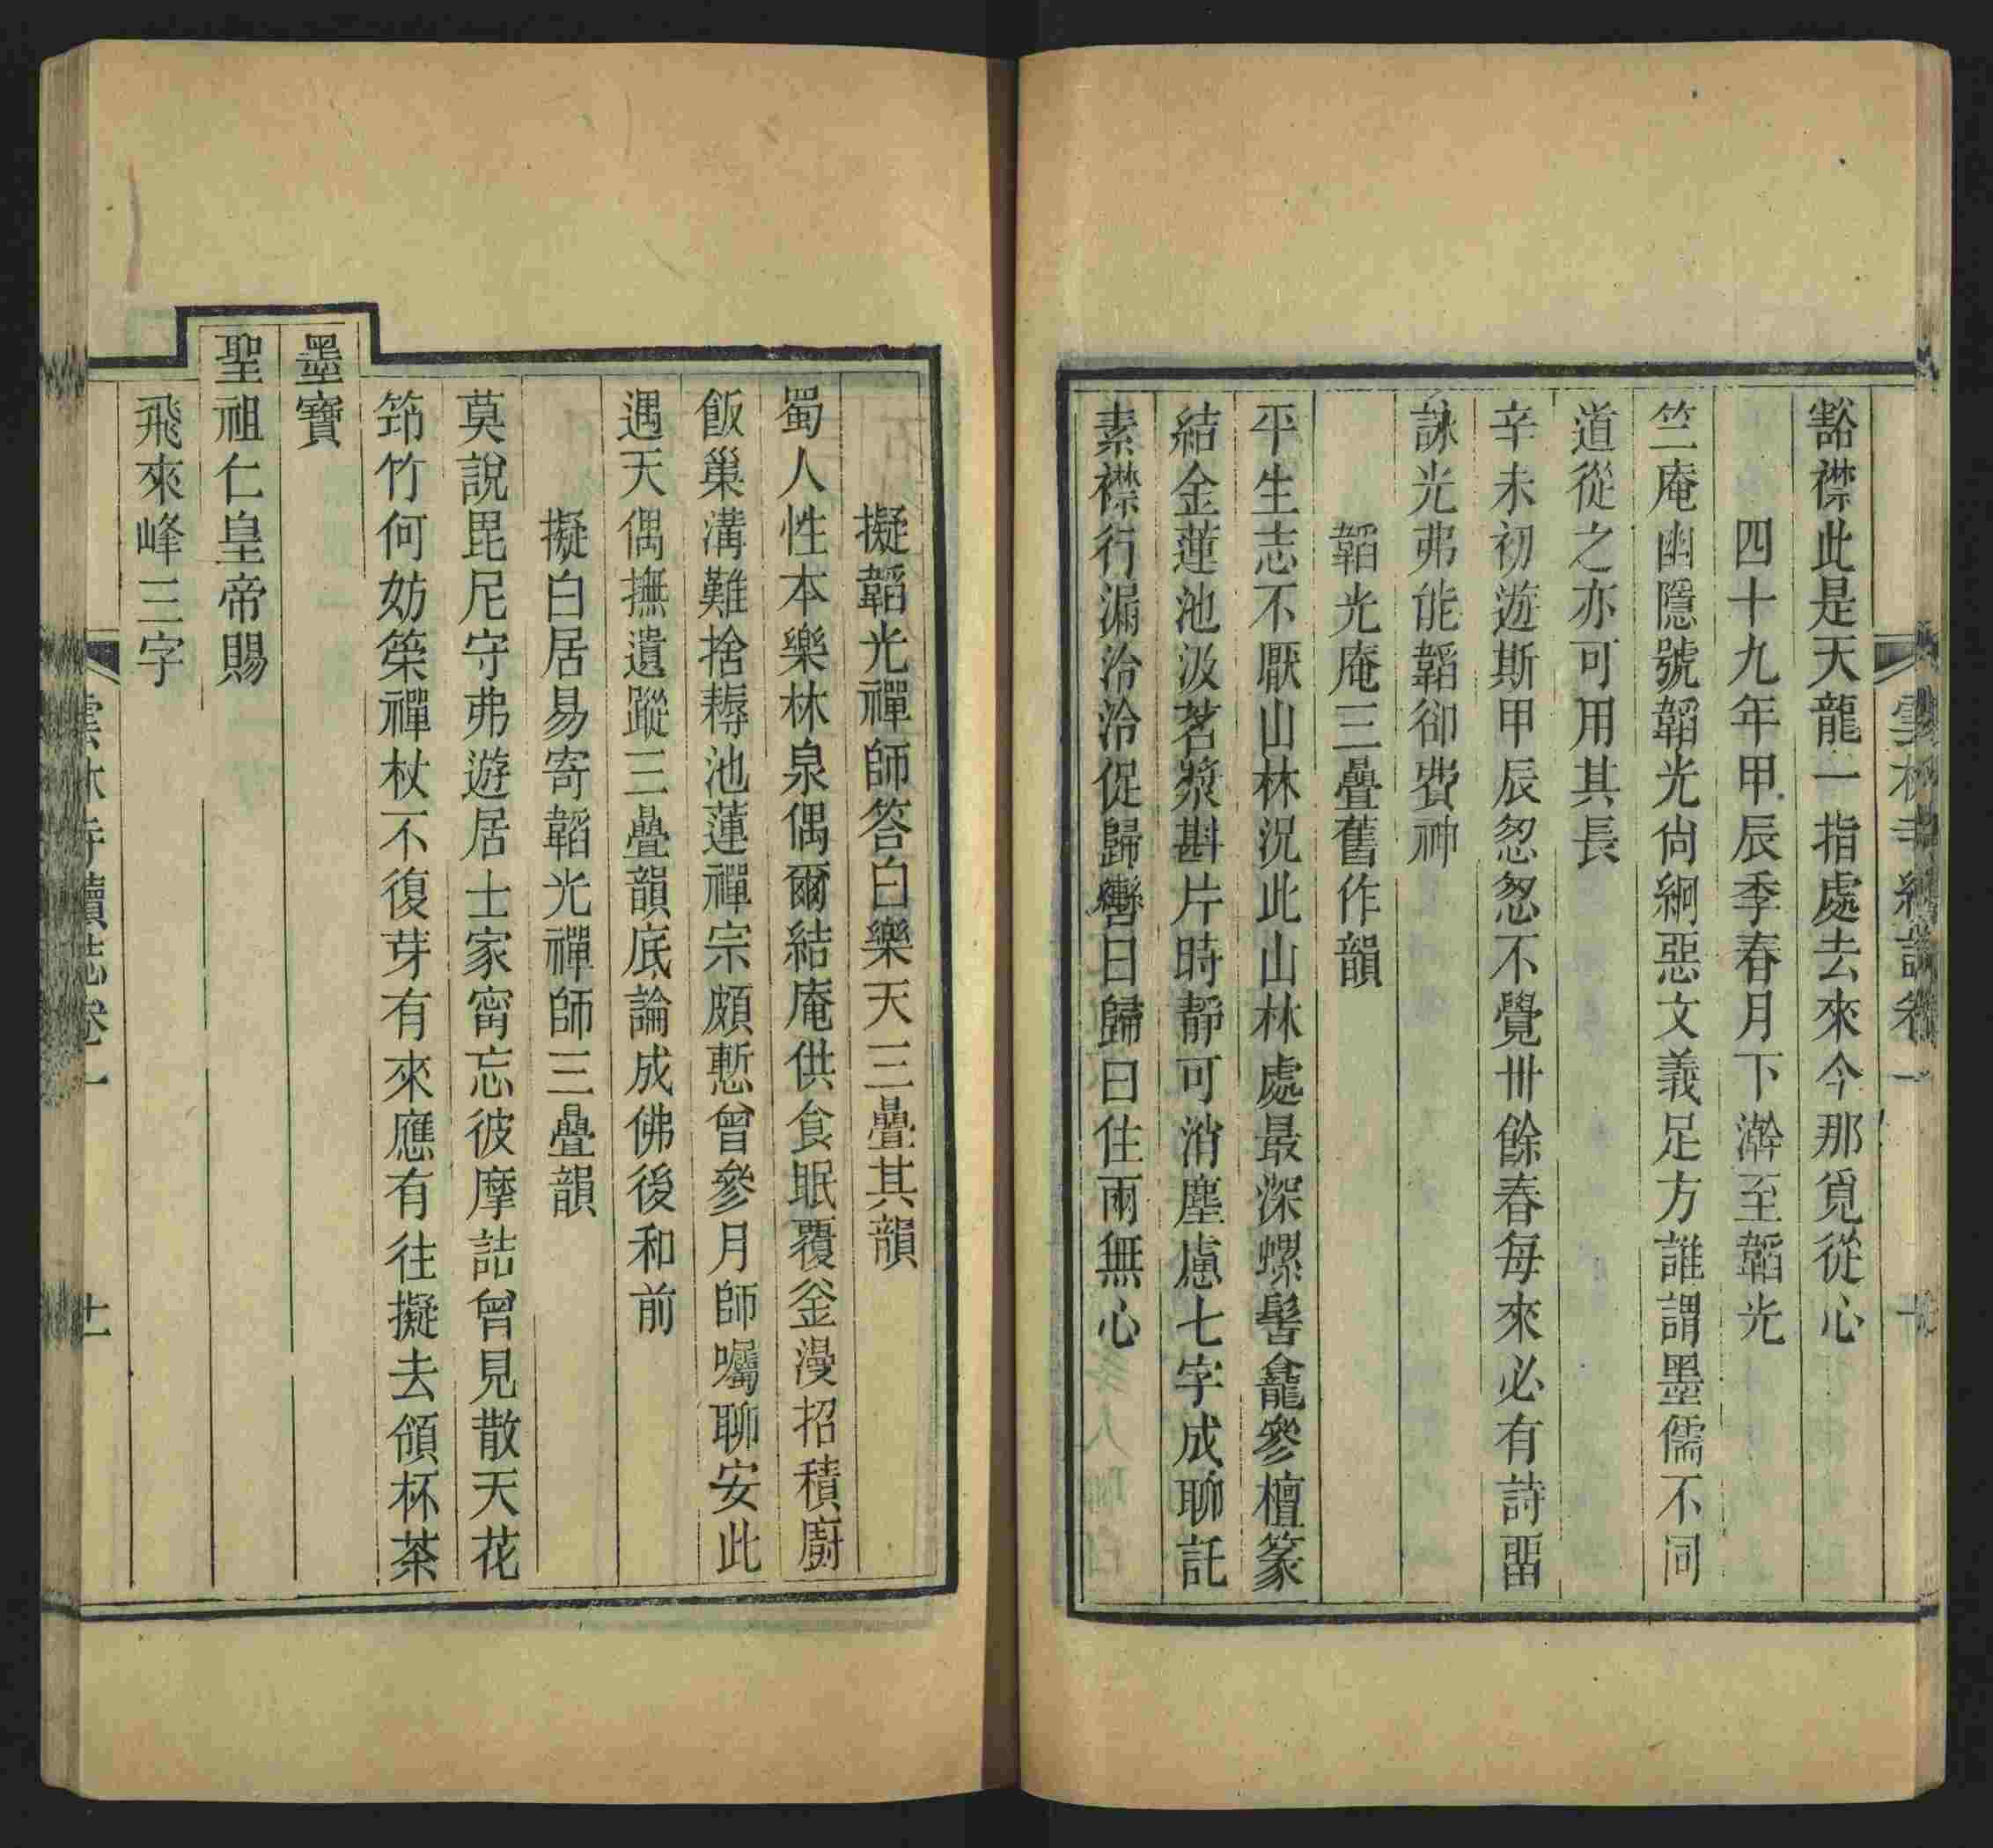 豁襟此是天龍一指處去來今那覓從心
四十九年甲辰季春月下澣至韜光
竺庵幽隱號韜光尙絅惡文義足方誰謂墨儒不同
道從之亦可用其長
辛未初遊斯甲辰怱怱不覺卅餘春每來必有詩畱
詠光弗能韜卻費神
韜光庵三疊舊作韻
平生志不厭山林況此山林處最深螺髻龕參檀篆
結金蓮池汲茗漿斟片時靜可消塵慮七字成聊託
素襟行漏泠泠促歸轡曰歸曰住兩無心
擬韜光禪師答白樂天三疊其韻
蜀人性本樂林泉偶爾結庵供食眠覆釜漫招積廚
飯巢溝難捨耨池蓮禪宗頗慙曾參月師囑聊安此
遇天偶撫遺蹤三疊韻底論成佛後和前
擬白居易寄韜光禪師三疊韻
莫說毘尼守弗遊居士家甯忘彼摩詰曾見散天花
筇竹何妨築禪杖不復芽有來應有往擬去領杯茶
墨寶
聖祖仁皇帝賜
飛來峰三字
雲林寺續誌卷一 十一